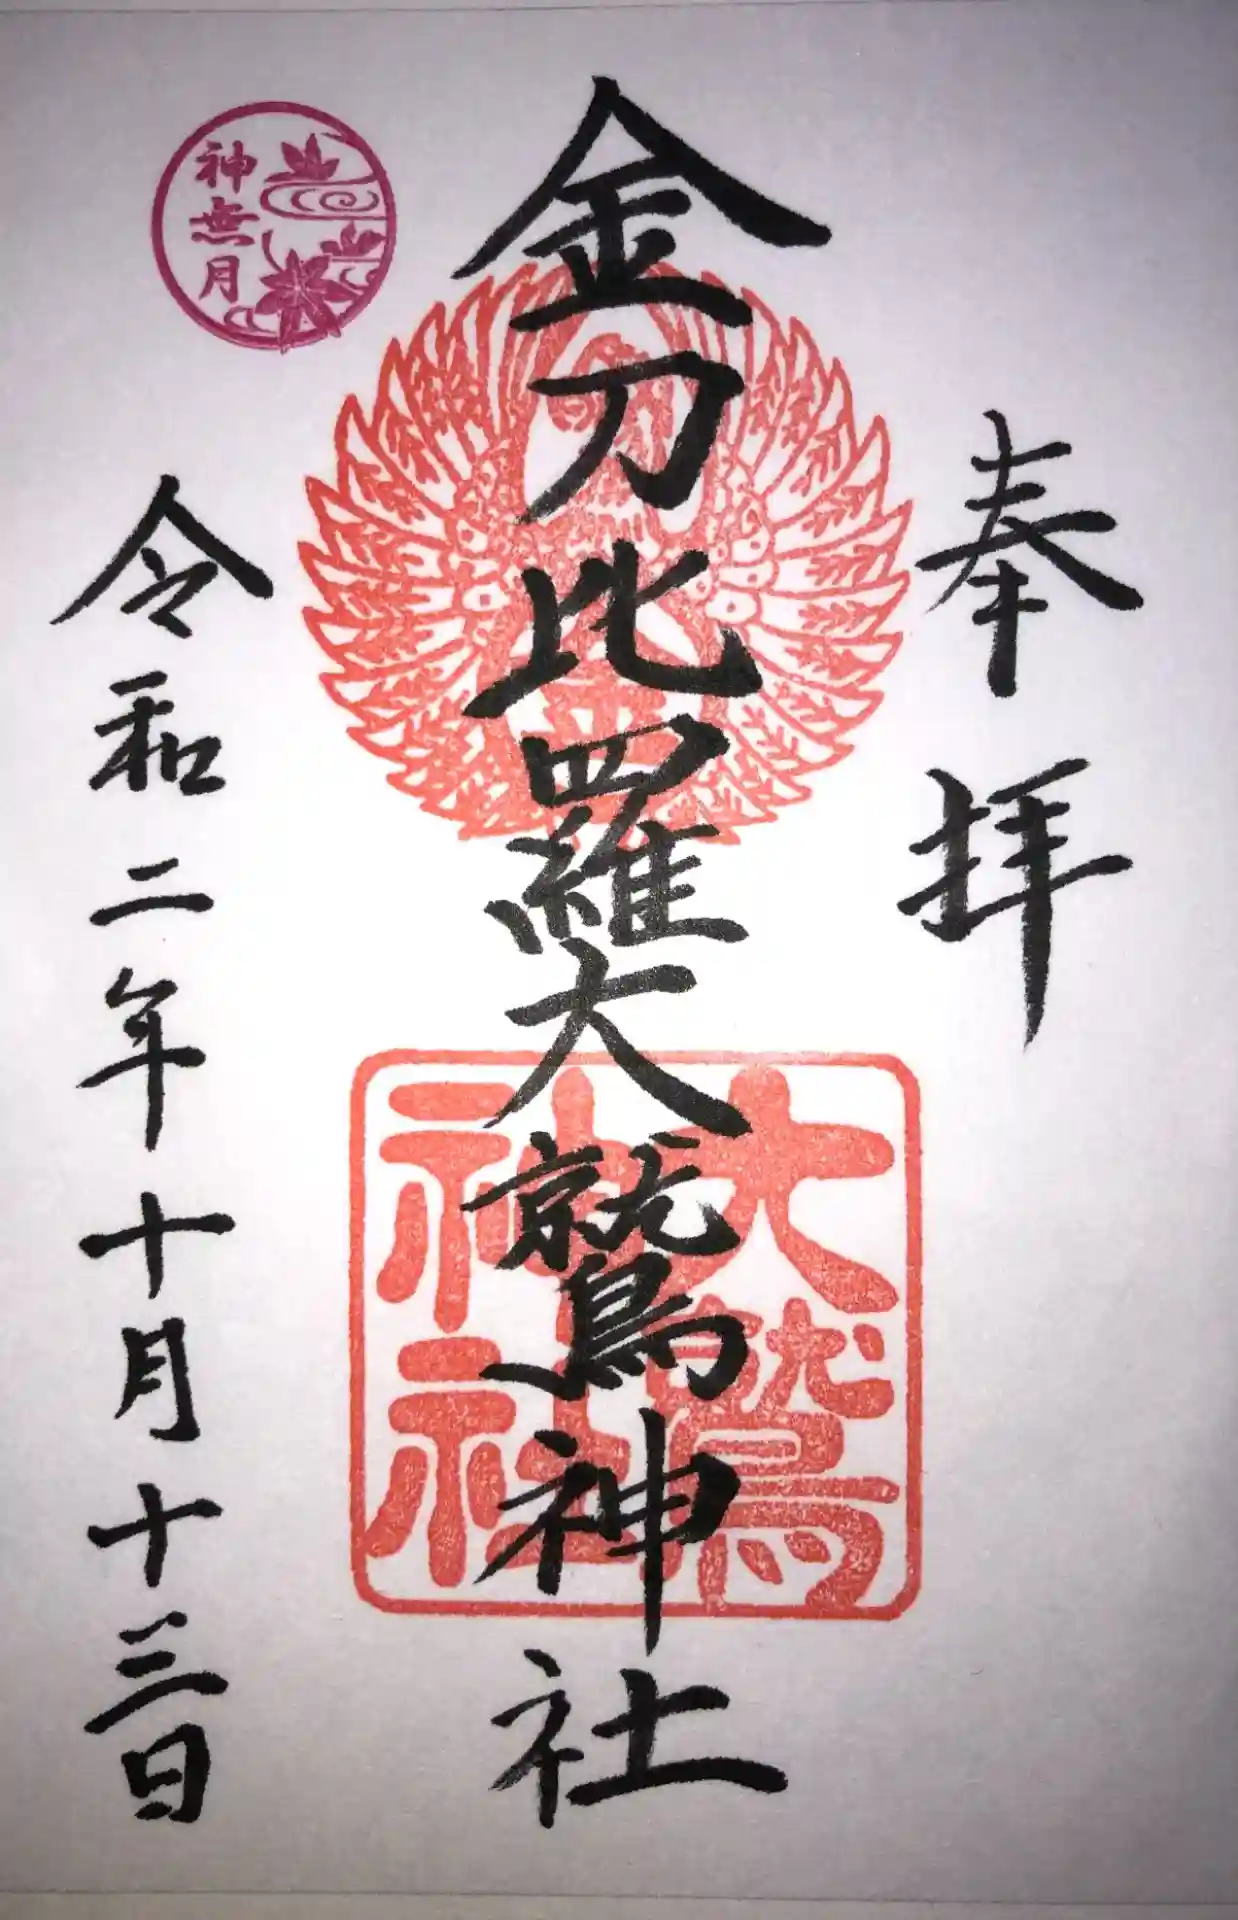 奉拝
金刀比羅大鷲神社
大鷲
神社
令和二年十月十三日
神無月